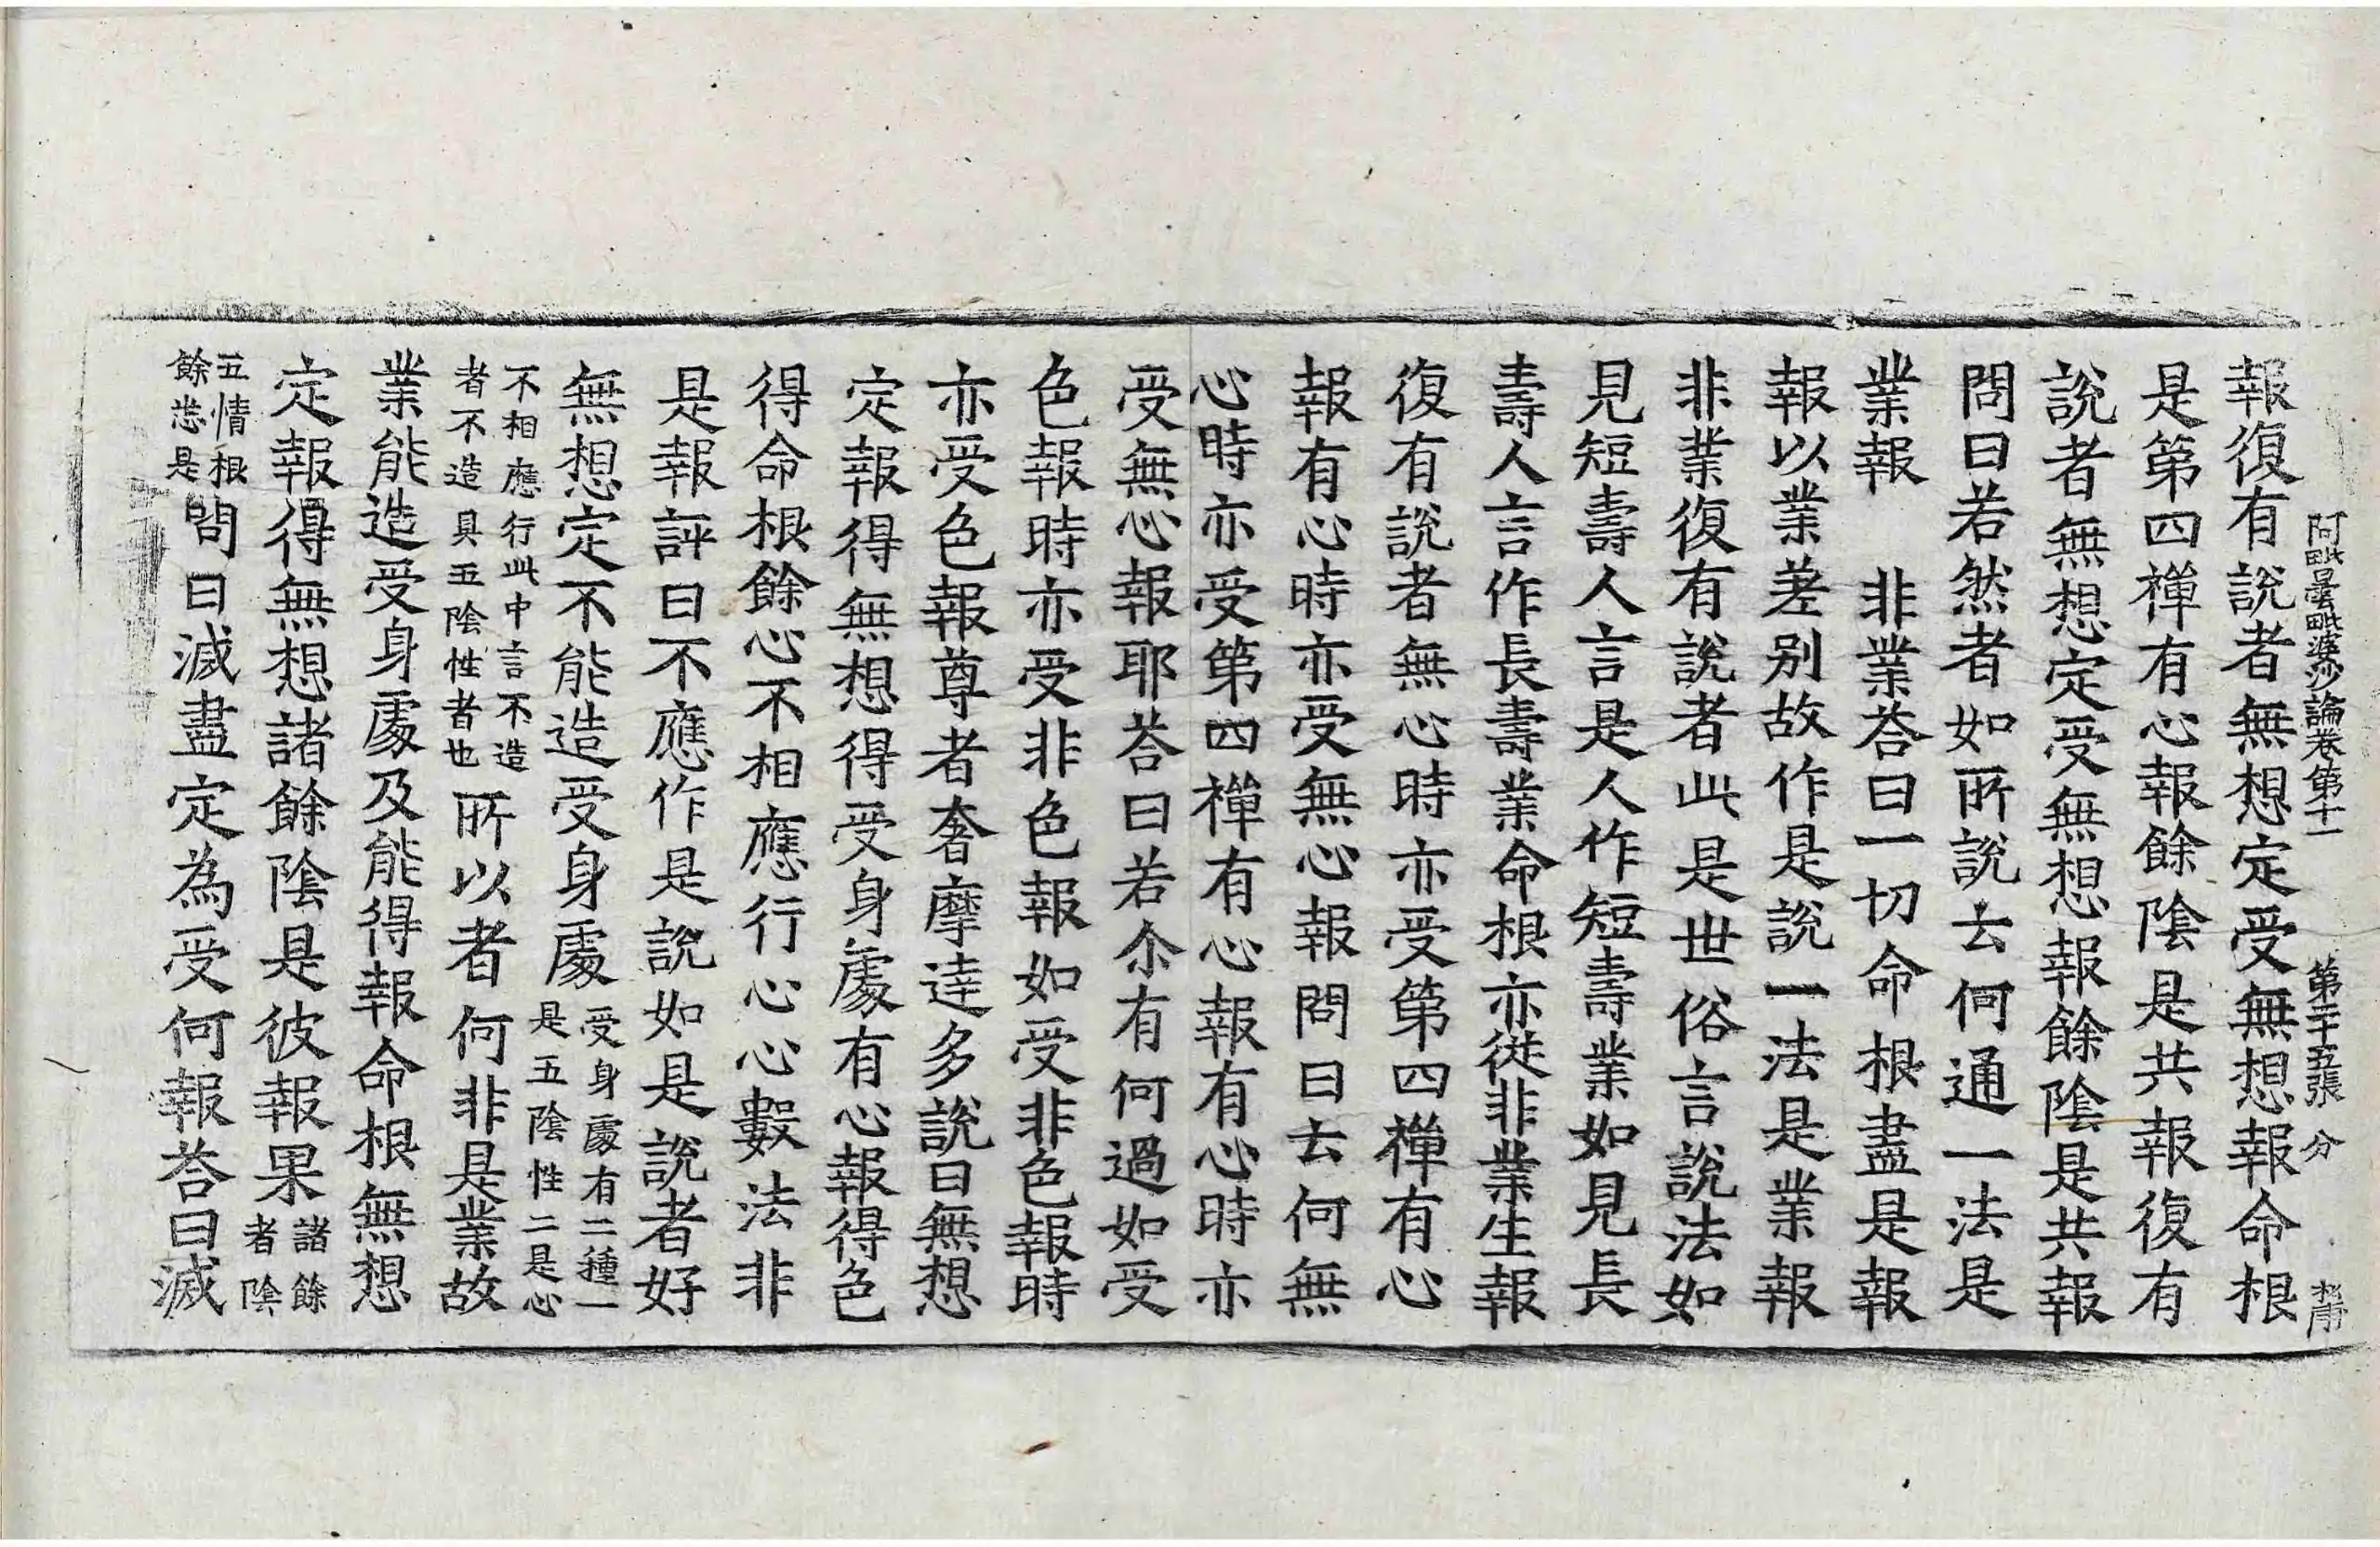 阿毗曇毗婆沙論卷第十一 第二十五張 分
報復有說者無想定受無想報命根
是第四禪有心報餘陰是共報復有
說者無想定受無想報餘陰是共報
問曰若然者如所說去何通一法是
業報 非業荅曰一切命根盡是報
報以業差別故作是說一法是業報
非業復有說者此是世俗言說法如
見短壽人言是人作短壽業如見長
壽人言作長壽業命根亦從非業生報
復有說者無心時亦受第四禪有心
報有心時亦受無心報問曰去何無
心時亦受第四禪有心報有心時亦
受無心報耶荅曰若尒有何過如受
色報時亦受非色報如受非色報時
亦受色報尊者奢摩達多說曰無想
定報得無想得受身處有心報得色
得命根餘心不相應行心心數法非
是報評曰不應作是說如是說者好
無想定不能造受身處受身處有二種一
是五陰性二是心
不相應行此中言不造
者不造具五陰性者也所以者何非是業故
業能造受身處及能得報命根無想
定報得無想諸餘陰是彼報果諸餘
者陰
五情根
餘悉是問曰滅盡定為受何報荅曰滅